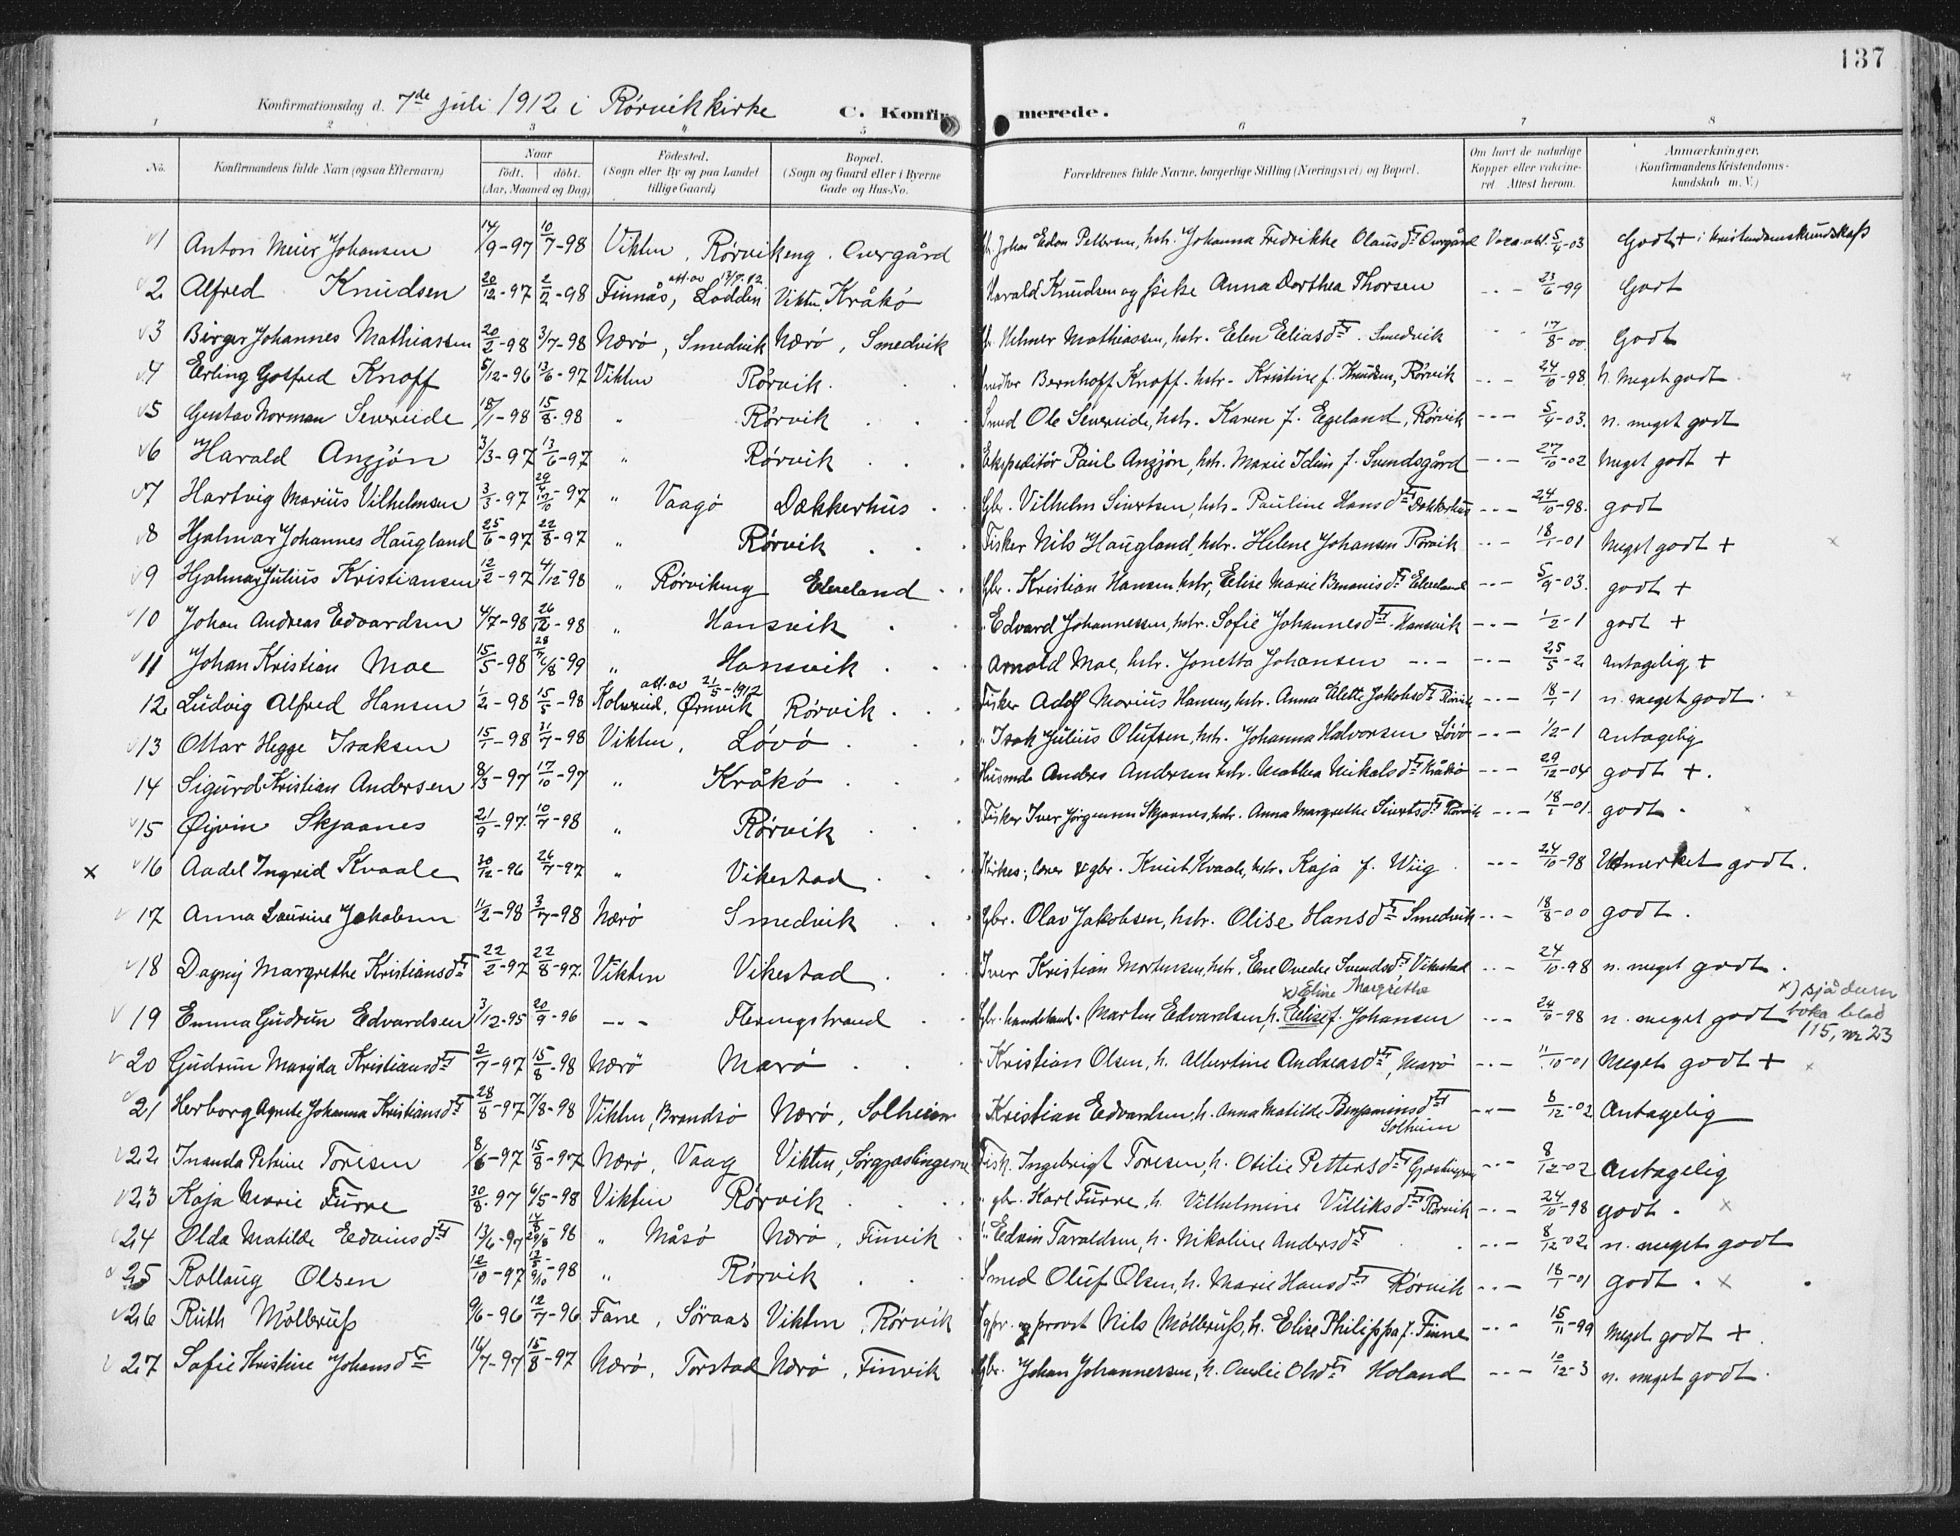 137
Konfirmationsdag d. 7de juli 1912 i Rørvik kirke C. Konfirmerede.
1 2 3 4 5 6 7 8
No. Konfirmandens fulde Navn (ogsaa Efternavn) Naar født. døbt. (Aar, Maaned og Dag) Fødested. (Sogn eller By og paa Landet tillige Gaard) Bopæl. (Sogn og Gaard eller i Byerne Gade og Hus-No. Forældrenes fulde Navne, borgerlige Stilling (Næringsvei) og Bopæl. Om havt de naturlige Kopper eller vaccineret. Attest herom. Anmærkninger, (Konfirmandens Kristendomskundskab m. V.)
1 Anton Meier Johansen 14/9-97 10/7-98 Vikten, Rørvikeng. Overgård Johan Edon Pettersen, hstr. Johanna Fredrikke Olausdtr Overgård Vacc. att. 5/4-03 Godt + i kristendomskundskap
2 Alfred Knudsen 20/12-97 2/2-98 Finnås, Lodden Vikten, Kråkö Harald Knudsen og pike Anna Dorthea Thorsen - - - 23/6-99 Godt
3 Birger Johannes Mathiassen 20/2-98 3/7-98 Nærö, Smedvik Nærö, Smedvik Helmer Mathiassen, hstr. Elen Eliasdtr. Smedvik 17/8-00 Godt
4 Erling Gotfred Knoff 5/12-96 13/6-97 Vikten Rörvik. Bernhoff Knoff. hstr. Kristine f. Knudsen, Rörvik - - - 24/10-98 n. meget godt
5 Gustav Norman Severeide 18/1-98 15/8-98 " Rörvik Smed Ole Severeide, hstr. Karen f. Egeland, Rörvik - - - 5/4-03. n. meget godt
6 Harald Anzjön 3/3-97 13/6-97 " Rörvik Ekspeditör Paul Anzjön, hstr. Marie Idun f. Svendsgård - - - 27/10-02 Meget godt +
7 Hartvig Marius Vilhelmsen 3/3-97 " Vaagö Dækkerhus Gbr. Vilhelm Sivertsen, hstr. Pauline Hansdtr Dækkerhus - - - 24/10-98. godt
8 Hjalmar Johannes Haugland 25/6-97 22/8-97 " Rörvik Fisker Nils Haugland, hstr. Helene Johansen Rörvik - - - 18/1-01 Meget godt +
9 Hjalmar Julius Kristiansen 12/2-97 4/12-98 " Rörvikeng Elveland Gbr. Kristian Hansen, hstr, Elise Marie Elveland - - - 5/9-03. godt +
10 Johan Andreas Edvardsen 4/7-98 26/12-98 " Hansvik " Edvard Johannessen, hstr. Sofie Johannesdtr. Hansvik - - - 1/2-1 godt +
11 Johan Kristian Moe 15/5-98 " Hansvik " Arnold Moe, hstr. Jonetta Johansen - - - - - - 25/5-2 antagelig +
att. av 21/5-1912
12 Ludvig Alfred Hansen 1/2-98 15/5-98 Kolvereid, Ørnvik Rörvik Fisker Adolf Marius Hansen, hstr. Anna Elett Jakobsdtr Rörvik - - - 18/1-1 n. meget godt.
13 Ottar Hegge Isaksen 15/1-98 31/7-98 Vikten, Lövö " Isak Julius Olufsen, hstr. Johanna Halvorsen Lövö - - - 1/2-1 antagelig
14 Sigurd Kristian Andersen 8/3-97 17/10-97 " Kråkö Husmd Anders Andersen hstr. Mathea Nikalsdtr Kråkö - - - 29/12-04 godt +.
15 Øivin Skjaanes 21/9-97. 10/7-98 " Rörvik Fisker Iver Jörgensen Skjaanes, hstr. Anna Margrethe Sivertsdtr Rörvik - - - 18/1-01. godt.
x 16 Aadel Ingrid Kvaale 30/12-96 26/7-97 " Vikestad Kirkes., lærer & gbr. Knut Kvaale, hstr. Kaja f. Wiig - - - 24/10-98 Utmerket godt.
17 Anna Laurine Jakobsen 11/2-98 3/7-98 Nærö Smedvik Gbr. Olav Jakobsen, hstr. Olise Hansdtr Smedvik - - - 18/8-00 godt.
18 Dagny Margrethe Kristiansdtr 22/2-97 22/8-97. Vikten Vikestad Iver Kristian Mortensen, hstr. Ovedie Svendsdtr Vikestad - - - 24/10-98 n. meget godt.
x) Eline Margrethe x) sjå dåps
19 Emma Gudrun Edvardsen 3/12-95 20/9-96 - - - Flerengstrand Gbr. Martin Edvardsen, h. Elise f. Johansen - - - 24/10-98 n. meget godt boka blad
115, nr 23
20 Gudrun Maryda Kristiansdtr 2/7-97 15/8-98 Nærö Marö Kristian Olsen, h. Albertine Andreasdtr, Marö - - - 11/10-01 Meget godt +
21 Herborg Agnete Johanna Kristiansdtr 28/8-97 7/8-98 Vikten, Brandsö Nærö, Solheim " Kristian Edvardsen, h. Anna Matilde Benjaminsdtr Solheim - - - 8/12-02 Antagelig
22 Inanda Petrine Toresen 8/6-97 15/8-97 Nærö, Vaag Vikten, Sörgjæslingerne Fisk. Ingebrigt Toresen, h. Otilie Pettersdtr Gjæslingerne - - - 8/12-02 antagelig
23 Kaja Marie Furre 30/8-97 6/5-98 Vikten Rörvik " gbr. Karl Furre, h. Vilhelmine Villiksdtr Rörvik - - - 24/10-98 godt.
24 Olda Matilde Edvinsdtr 13/6-97 " Måsö Nærö, Finvik " Edvin Taraldsen, h. Nikoline Andersdtr - - - 8/12-02 n. meget godt
25 Rollaug Olsen 12/10-97 " Rörvik Smed Oluf Olsen, h. Marie Hansdtr Rörvik - - - 18/1-01 godt. x
26 Ruth Möllerup 9/6-96 12/7-96 Fane, Söraas Vikten, Rörvik Sgpr. og provst Nils Möllerup, h. Elise Philippa f. Finne - - - 15/11-99 Meget godt +.
27 Sofie Kristine Johansdtr 16/7-97 15/8-97 Nærö, Torstad Nærö, Finvik Gbr. Johan Johannessen, h. Amelie Olsdtr Holand - - - 10/12-3 n. meget godt.